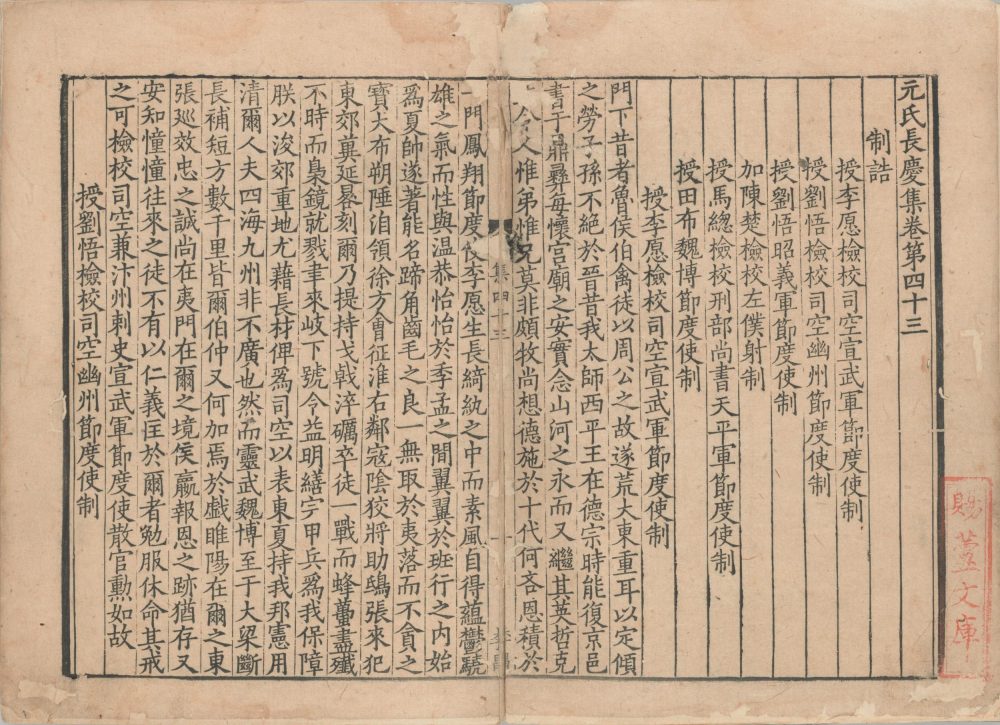 元氏長慶集卷第四十三
制誥
授李愿檢校司空宣武軍節度使制
授劉悟檢校司空幽州節度使制
授劉悟昭義軍節度使制
加陳楚檢校左僕射制
授馬緫檢校刑部尚書天平軍節度使制
授田布魏博節度使制
授李愿檢校司空宣武軍節度使制
門下昔者魯侯伯禽徒以周公之故遂荒大東重耳以定傾
之勞子孫不絕於晉昔我太師西平王在德宗時能復京邑
書于鼎彝每懷宫廟之安實念山河之永而又繼其英哲克
今人惟弟惟兄莫非頗牧尚想德施於十代何吝恩積於
集四十三
一
一門鳳翔節度使李愿生長綺紈之中而素風自得蘊鬱驍
雄之氣而性與温恭怡怡於季孟之間翼翼於班行之内始
爲夏帥遂著能名蹄角齒毛之良一無取於夷落而不貪之
寶大布朔陲洎領徐方會征淮右鄰寇陰狡將助鴟張來犯
東郊冀延晷刻爾乃提持戈戟淬礪卒徒一戰而蜂蠆盡殲
不時而梟鏡就戮聿來岐下號令益明繕宇甲兵爲我保障
朕以浚郊重地尤藉長材俾爲司空以表東夏持我邦憲用
清爾人夫四海九州非不廣也然而靈武魏博至于大梁斷
長補短方數千里皆爾伯仲又何加焉於戲睢陽在爾之東
張廵效忠之誠尚在夷門在爾之境侯嬴報恩之跡猶存又
安知憧憧往來之徒不有以仁義於爾者勉服休命其戒
之可檢校司空兼汴州刺史宣武軍節度使散官勲如故
授劉悟檢校司空幽州節度使制
賜蘆文庫